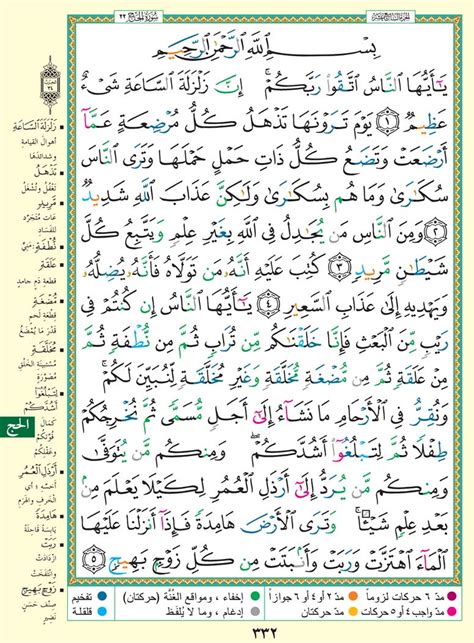 سُورَةُ الحَجِّ ٢٢
بِسْمِ اللَّهِ الرَّحْمَٰنِ الرَّحِيمِ
يَٰٓأَيُّهَا ٱلنَّاسُ ٱتَّقُوا۟ رَبَّكُمْ ۚ إِنَّ زَلْزَلَةَ ٱلسَّاعَةِ شَىْءٌ
عَظِيمٌ ١ يَوْمَ تَرَوْنَهَا تَذْهَلُ كُلُّ مُرْضِعَةٍ عَمَّآ
أَرْضَعَتْ وَتَضَعُ كُلُّ ذَاتِ حَمْلٍ حَمْلَهَا وَتَرَى ٱلنَّاسَ
سُكَٰرَىٰ وَمَا هُم بِسُكَٰرَىٰ وَلَٰكِنَّ عَذَابَ ٱللَّهِ شَدِيدٌ
٢ وَمِنَ ٱلنَّاسِ مَن يُجَٰدِلُ فِى ٱللَّهِ بِغَيْرِ عِلْمٍ وَيَتَّبِعُ كُلَّ
شَيْطَٰنٍ مَّرِيدٍ ٣ كُتِبَ عَلَيْهِ أَنَّهُۥ مَن تَوَلَّاهُ فَأَنَّهُۥ يُضِلُّهُۥ
وَيَهْدِيهِ إِلَىٰ عَذَابِ ٱلسَّعِيرِ ٤ يَٰٓأَيُّهَا ٱلنَّاسُ إِن كُنتُمْ فِى
رَيْبٍ مِّنَ ٱلْبَعْثِ فَإِنَّا خَلَقْنَٰكُم مِّن تُرَابٍ ثُمَّ مِن نُّطْفَةٍ ثُمَّ
مِنْ عَلَقَةٍ ثُمَّ مِن مُّضْغَةٍ مُّخَلَّقَةٍ وَغَيْرِ مُخَلَّقَةٍ لِّنُبَيِّنَ لَكُمْ ۚ
وَنُقِرُّ فِى ٱلْأَرْحَامِ مَا نَشَآءُ إِلَىٰٓ أَجَلٍ مُّسَمًّى ثُمَّ نُخْرِجُكُمْ
طِفْلًا ثُمَّ لِتَبْلُغُوٓا۟ أَشُدَّكُمْ ۖ وَمِنكُم مَّن يُتَوَفَّىٰ
وَمِنكُم مَّن يُرَدُّ إِلَىٰٓ أَرْذَلِ ٱلْعُمُرِ لِكَيْلَا يَعْلَمَ مِنۢ
بَعْدِ عِلْمٍ شَيْـًٔا ۚ وَتَرَى ٱلْأَرْضَ هَامِدَةً فَإِذَآ أَنزَلْنَا عَلَيْهَا
ٱلْمَآءَ ٱهْتَزَّتْ وَرَبَتْ وَأَنۢبَتَتْ مِن كُلِّ زَوْجٍۭ بَهِيجٍ ٥
زَلْزَلَةَ السَّاعَةِ
أهوال القيامةِ
وشدائدها
تَذْهَلُ
تغفُلُ وتُشغَلُ
مَرِيدٍ
عَاتٍ مُتَجَرِّدٍ
للفسادِ
نُطْفَةٍ: مَنِيٍّ
عَلَقَةٍ
قطعةِ دمٍ جامدٍ
مُضْغَةٍ
قطعةِ لحمٍ
قدْرَ ما يُمْضَغُ
مُخَلَّقَةٍ
مُسْتبينةِ الخَلْقِ
مُصَوَّرةٍ
لِتَبْلُغُوا
أَشُدَّكُمْ
كمالَ
قُوَّتِكم
وعقلِكم
أَرْذَلِ الْعُمُرِ
أخسِّه؛ أي
الخَرَفِ والهَرَمِ
هَامِدَةً
يابسةً قاحلةً
رَبَتْ
ازدادَتْ
وانتفَخَتْ
زَوْجٍ بَهِيجٍ
صِنفٍ حَسَنٍ
نضيرٍ
الحج
مدّ ٦ حركات لزوماً
مدّ ٢ أو ٤ أو ٦ جوازاً
إخفاء، ومواقع الغُنَّة (حركتان)
تفخيم
مدّ واجب ٤ أو ٥ حركات
مدّ حركتان
إدغام، وما لا يُلفَظ
قلقلة
٣٣٢